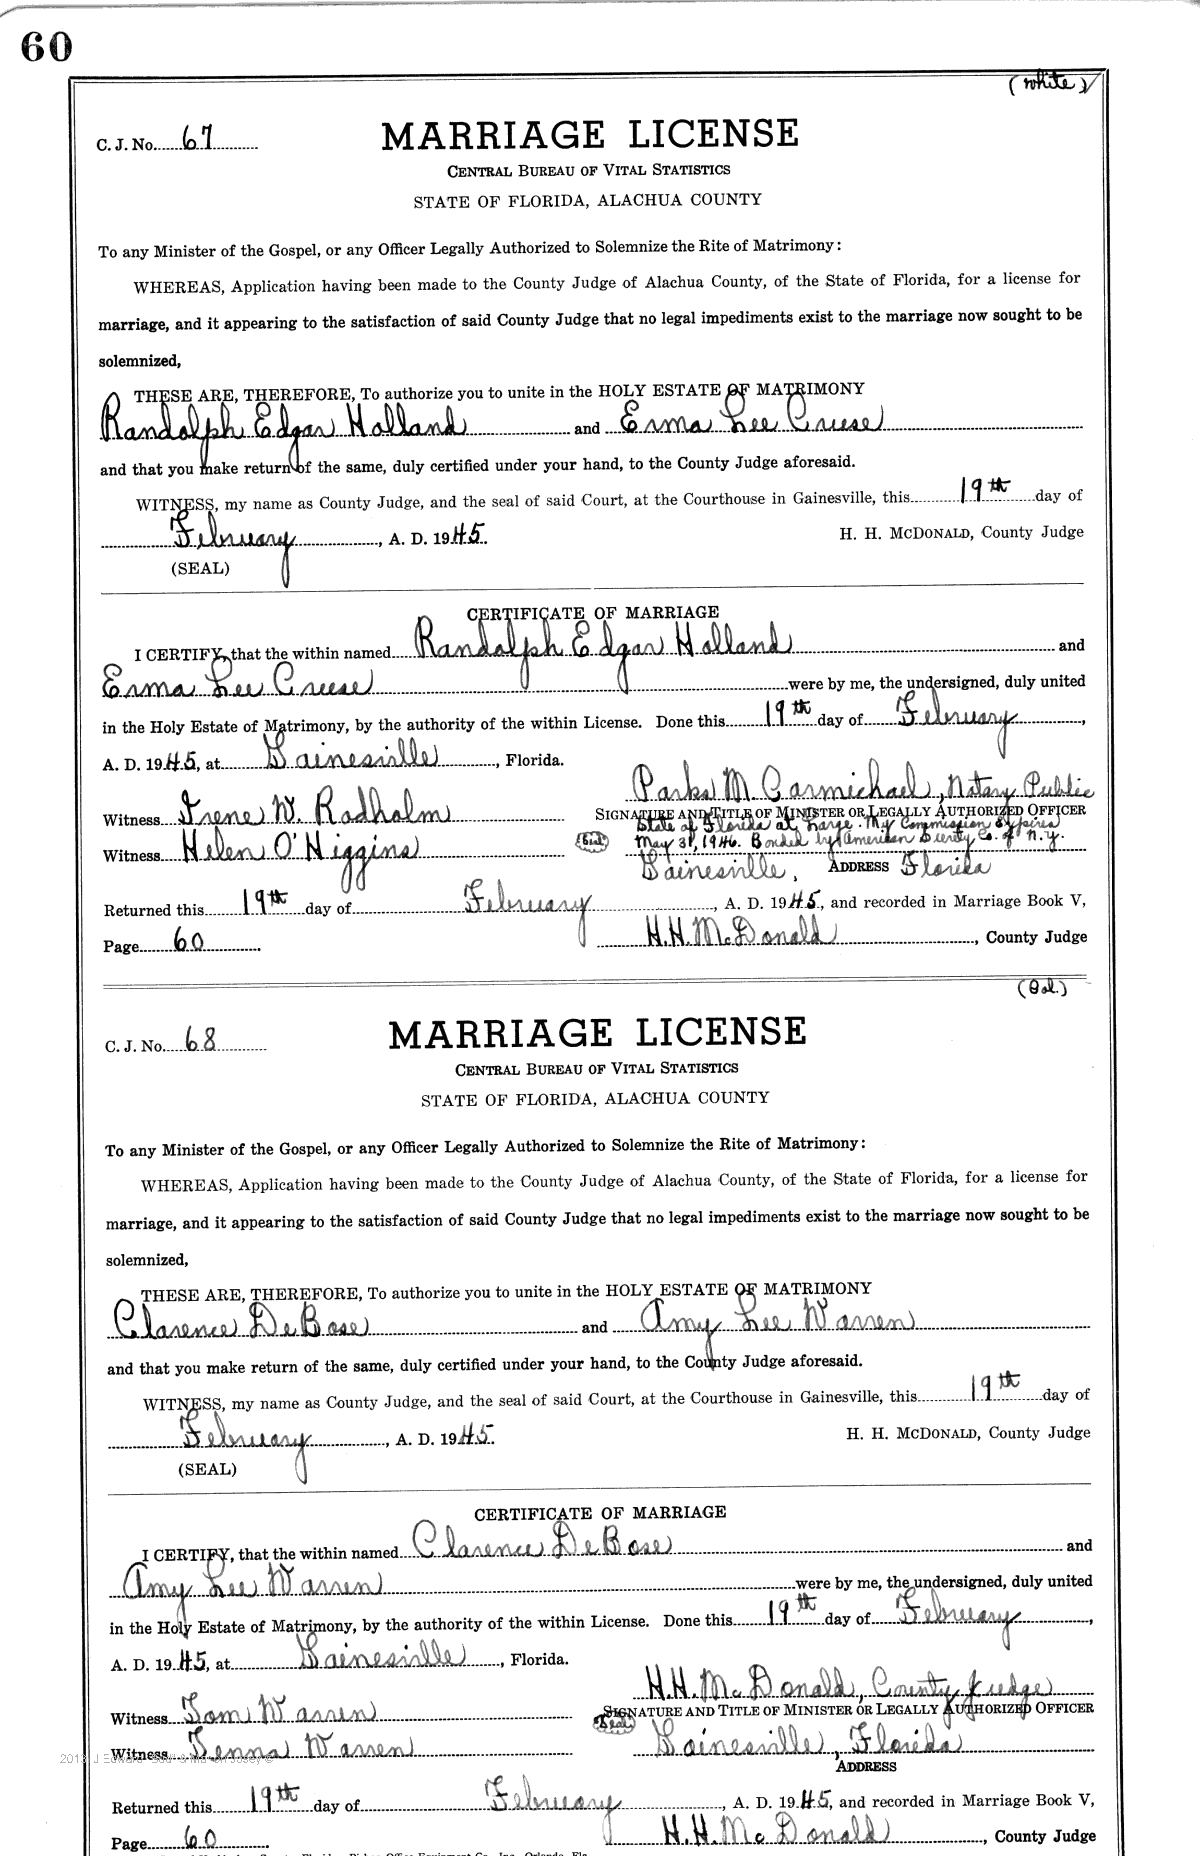 60
(white)
C. J. No. 67
MARRIAGE LICENSE
CENTRAL BUREAU OF VITAL STATISTICS
STATE OF FLORIDA, ALACHUA COUNTY
To any Minister of the Gospel, or any Officer Legally Authorized to Solemnize the Rite of Matrimony:
WHEREAS, Application having been made to the County Judge of Alachua County, of the State of Florida, for a license for
marriage, and it appearing to the satisfaction of said County Judge that no legal impediments exist to the marriage now sought to be
solemnized,
THESE ARE, THEREFORE, To authorize you to unite in the HOLY ESTATE OF MATRIMONY
Randolph Edgar Holland and Erma Lee Creese
and that you make return of the same, duly certified under your hand, to the County Judge aforesaid.
WITNESS, my name as County Judge, and the seal of said Court, at the Courthouse in Gainesville, this 19th day of
February, A. D. 1945. H. H. McDONALD, County Judge
(SEAL)
CERTIFICATE OF MARRIAGE
I CERTIFY, that the within named Randolph Edgar Holland and
Erma Lee Creese were by me, the undersigned, duly united
in the Holy Estate of Matrimony, by the authority of the within License. Done this 19th day of February,
A. D. 1945, at Gainesville, Florida.
Parks M. Carmichael, Notary Public
Witness Irene W. Radholm SIGNATURE AND TITLE OF MINISTER OR LEGALLY AUTHORIZED OFFICER
State of Florida at Large. My Commission Expires
Witness Helen O'Higgins (Seal) May 31, 1946. Bonded by American Surety Co. of N.Y.
Gainesville, ADDRESS Florida
Returned this 19th day of February, A. D. 1945, and recorded in Marriage Book V,
Page 60 H.H. McDonald, County Judge
(Col.)
C. J. No. 68
MARRIAGE LICENSE
CENTRAL BUREAU OF VITAL STATISTICS
STATE OF FLORIDA, ALACHUA COUNTY
To any Minister of the Gospel, or any Officer Legally Authorized to Solemnize the Rite of Matrimony:
WHEREAS, Application having been made to the County Judge of Alachua County, of the State of Florida, for a license for
marriage, and it appearing to the satisfaction of said County Judge that no legal impediments exist to the marriage now sought to be
solemnized,
THESE ARE, THEREFORE, To authorize you to unite in the HOLY ESTATE OF MATRIMONY
Clarence DeBose and Amy Lee Warren
and that you make return of the same, duly certified under your hand, to the County Judge aforesaid.
WITNESS, my name as County Judge, and the seal of said Court, at the Courthouse in Gainesville, this 19th day of
February, A. D. 1945. H. H. McDONALD, County Judge
(SEAL)
CERTIFICATE OF MARRIAGE
I CERTIFY, that the within named Clarence DeBose and
Amy Lee Warren were by me, the undersigned, duly united
in the Holy Estate of Matrimony, by the authority of the within License. Done this 19th day of February,
A. D. 1945, at Gainesville, Florida.
H.H. McDonald, County Judge
Witness Tom Warren SIGNATURE AND TITLE OF MINISTER OR LEGALLY AUTHORIZED OFFICER
(Seal)
Witness Warren Gainesville, Florida
ADDRESS
Returned this 19th day of February, A. D. 1945, and recorded in Marriage Book V,
Page 60 H.H. McDonald, County Judge